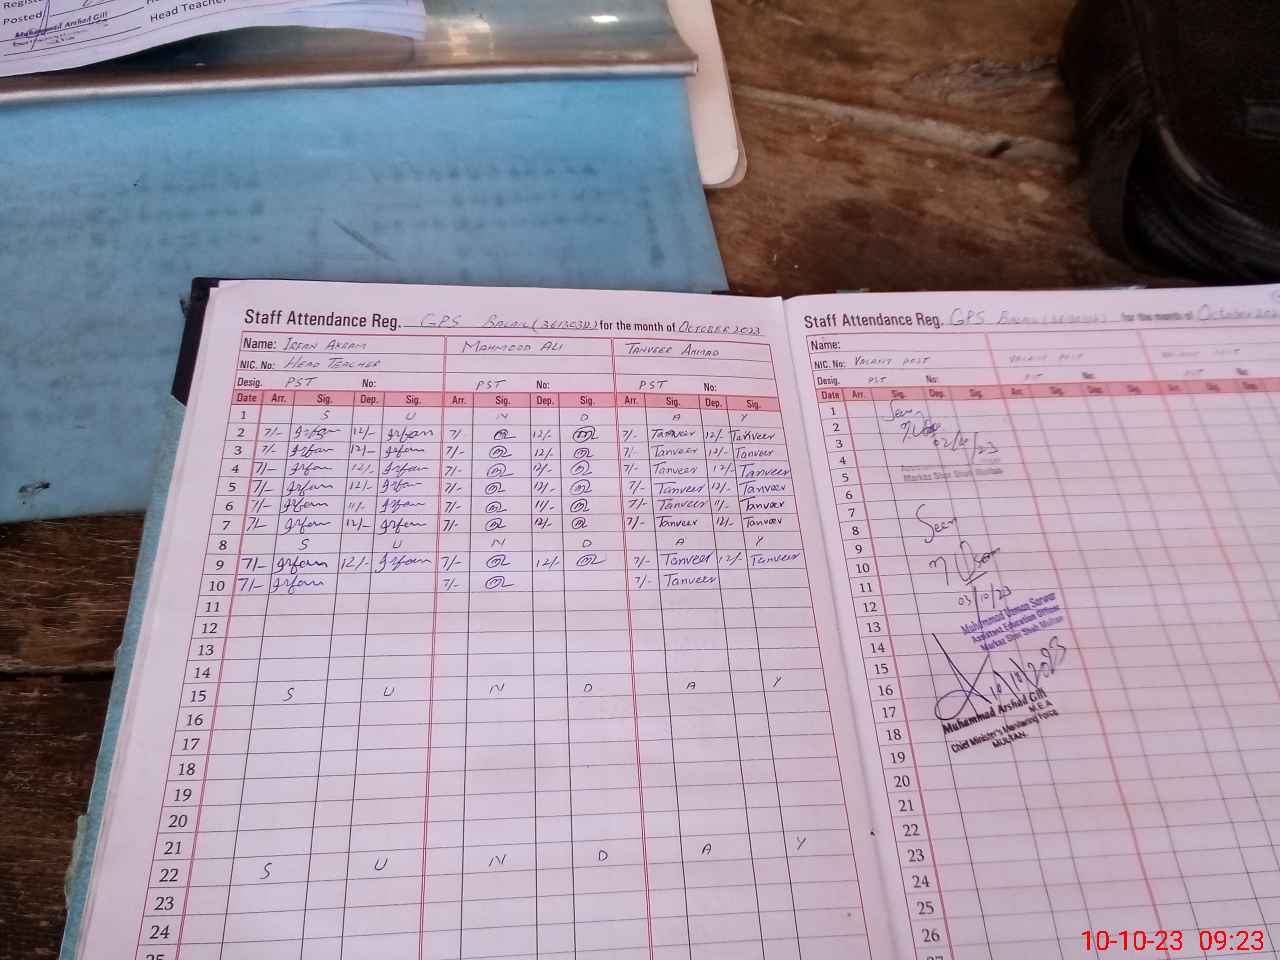 Posted
Head Teacher
Muhammad Arshad Gill
Staff Attendance Reg. GPS for the month of OCTOBER 2023
Name: IRFAN AKRAM MAHMOOD ALI TANVEER AHMAD
NIC. No: HEAD TEACHER
Desig. PST No: PST No: PST No:
Date Arr. Sig. Dep. Sig. Arr. Sig. Dep. Sig. Arr. Sig. Dep. Sig.
1 S U N D A Y
2 7/- Irfan 12/- Irfan 7/ 12/- 7/- Tanveer 12/- Tanveer
3 7/- Irfan 12/- Irfan 7/- 12/- 7/- Tanveer 12/- Tanveer
4 7/- Irfan 12/- Irfan 7/- 12/- 7/- Tanveer 12/- Tanveer
5 7/- Irfan 12/- Irfan 7/- 12/- 7/- Tanveer 12/- Tanveer
6 7/- Irfan 11/- Irfan 7/- 11/- 7/- Tanveer 11/- Tanveer
7 7/- Irfan 12/- Irfan 7/- 12/- 7/- Tanveer 12/- Tanveer
8 S U N D A Y
9 7/- Irfan 12/- Irfan 7/- 12/- 7/- Tanveer 12/- Tanveer
10 7/- Irfan 7/- 7/- Tanveer
11
12
13
14
15 S U N D A Y
16
17
18
19
20
21
22 S U N D A Y
23
24
25
Staff Attendance Reg. GPS for the month of October
Name:
NIC. No: VACANT POST VACANT POST VACANT POST
Desig. PST No: PST No: PST No:
Date Arr. Sig. Dep. Sig. Arr. Sig. Dep. Sig. Arr. Sig. Dep.
1 Seen
2
3
4
5 Markaz Sher Shah Multan
6
7 Seen
8
9
10
11
12 03/10/23
13 Muhammad Usman Sarwar
Assistant Education Officer
14 Markaz Sher Shah Multan
15
16 10/10/2023
17 Muhammad Arshad Gill
M.E.A
18 Chief Minister's Monitoring Force
MULTAN
19
20
21
22
23
24
25
26
27
10-10-23 09:23